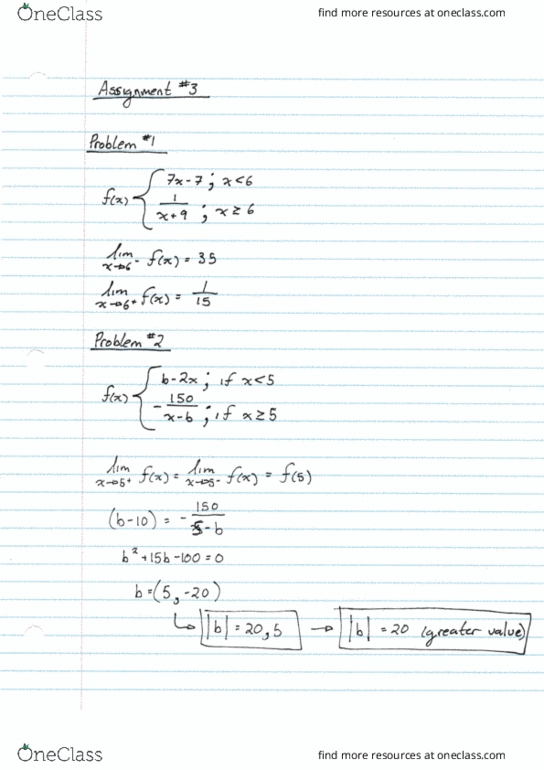 OneClass
find more resources at oneclass.com
Assignment #3
Problem #1
f(x) { 7x-7 ; x<6
1/(x+9) ; x≥6
lim x→6⁻ f(x) = 35
lim x→6⁺ f(x) = 1/15
Problem #2
f(x) { b-2x ; if x<5
-150/(x-b) ; if x≥5
lim x→5⁺ f(x) = lim x→5⁻ f(x) = f(5)
(b-10) = -150/(5-b)
b²+15b-100=0
b=(5,-20)
↳ |b| = 20,5 → |b| = 20 (greater value)
OneClass
find more resources at oneclass.com